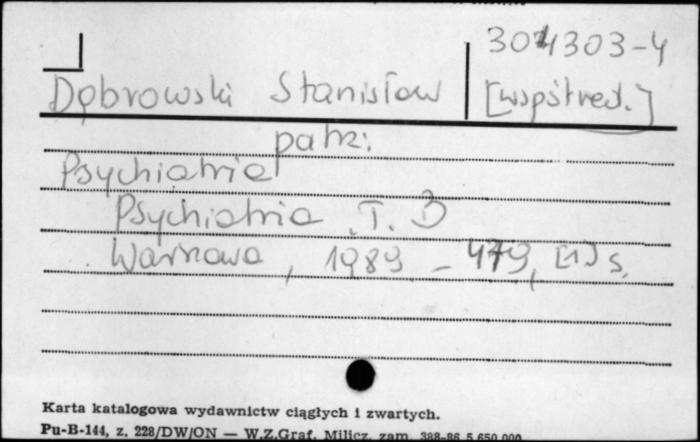 301303-4
Dąbrowski Stanisław [współred.]
patrz:
Psychiatria
Psychiatria T. 3
Warszawa, 1989 - 479, [1] s.
Karta katalogowa wydawnictw ciągłych i zwartych.
Pu-B-144, z. 228/DW/ON — W.Z.Graf. Milicz, zam. 388-86 5.650.000